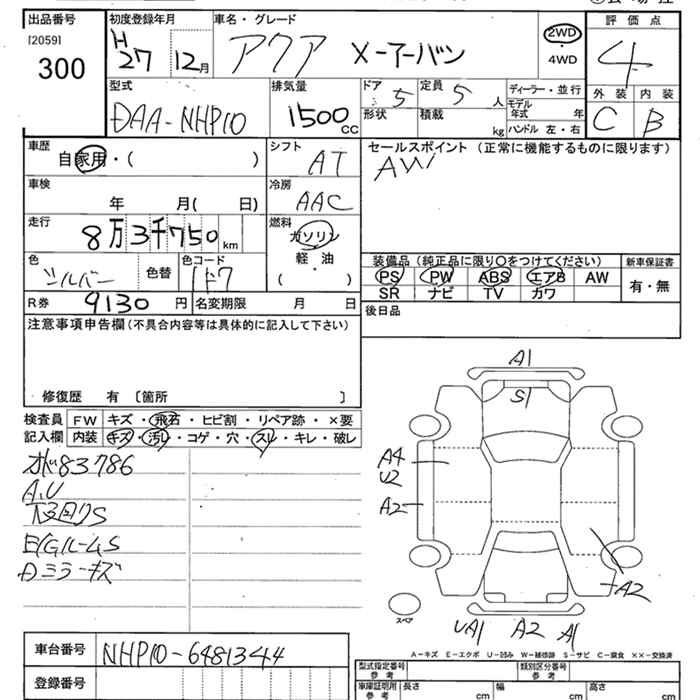 出品番号
[2059]
300
初度登録年月
H27 12月
車名・グレード
アクア X-アーバン
2WD
・
4WD
評価点
4
外装 内装
C B
型式
DAA-NHP10
排気量
1500 CC
ドア
5
定員
5 人
形状
積載
kg
ディーラー・並行
モデル年式 年
ハンドル 左・右
車歴
自家用・( )
シフト
AT
車検
年 月( 日)
冷房
AAC
走行
8万3千750 km
燃料
ガソリン
軽・油
( )
色
シルバー
色替
色コード
1F7
R券 9130 円
名変期限 月 日
セールスポイント (正常に機能するものに限ります)
AW
装備品 (純正品に限り○をつけてください)
PS PW ABS エアB AW
SR ナビ TV カワ
新車保証書
有・無
後日品
注意事項申告欄(不具合内容等は具体的に記入して下さい)
修復歴 有 〔箇所 〕
検査員記入欄
FW キズ・飛石・ヒビ割・リペア跡・×要
内装 キズ・汚レ・コゲ・穴・スレ・キレ・破レ
83786
A.U
下回りS
E/GルームS
Dミラーキズ
A1
S1
A4
U2
A2
A2
スペア
UA1 A2 A1
A-キズ E-エクボ U-凹み W-補修跡 S-サビ C-腐食 ××-交換済
車台番号 NHP10-6481344
登録番号
型式指定番号
参考
類別区分番号
参考
車庫証明用
参考
長さ cm
幅 cm
高さ cm